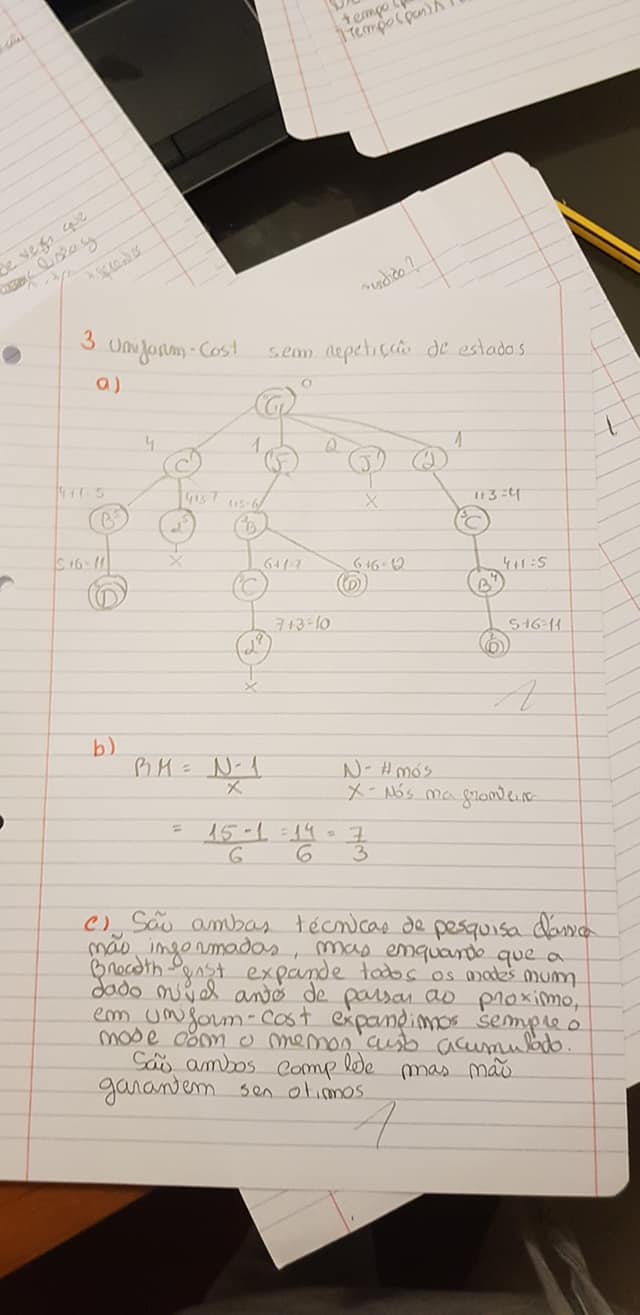 tempo(pan)
de vejo que
3 Uniform-Cost sem repetição de estados
a)
G 0
4 1 2 1
C F J
4+1=5 4+3=7 1+5=6 X 1+3=4
B B C
X
5+6=11 6+1=7 6+6=12 4+1=5
D C D B
7+3=10 5+6=11
D
X
b)
BM = N-1 N - # nós
X X - Nós na fronteira
= 15-1 = 14 = 7
6 6 3
c) São ambas técnicas de pesquisa
não informadas, mas enquanto que a
Breadth-first expande todos os nodes num
dado nível antes de passar ao proximo,
em uniform-cost expandimos sempre o
node com o menor custo acumulado.
São ambos complete mas não
garantem ser otimos